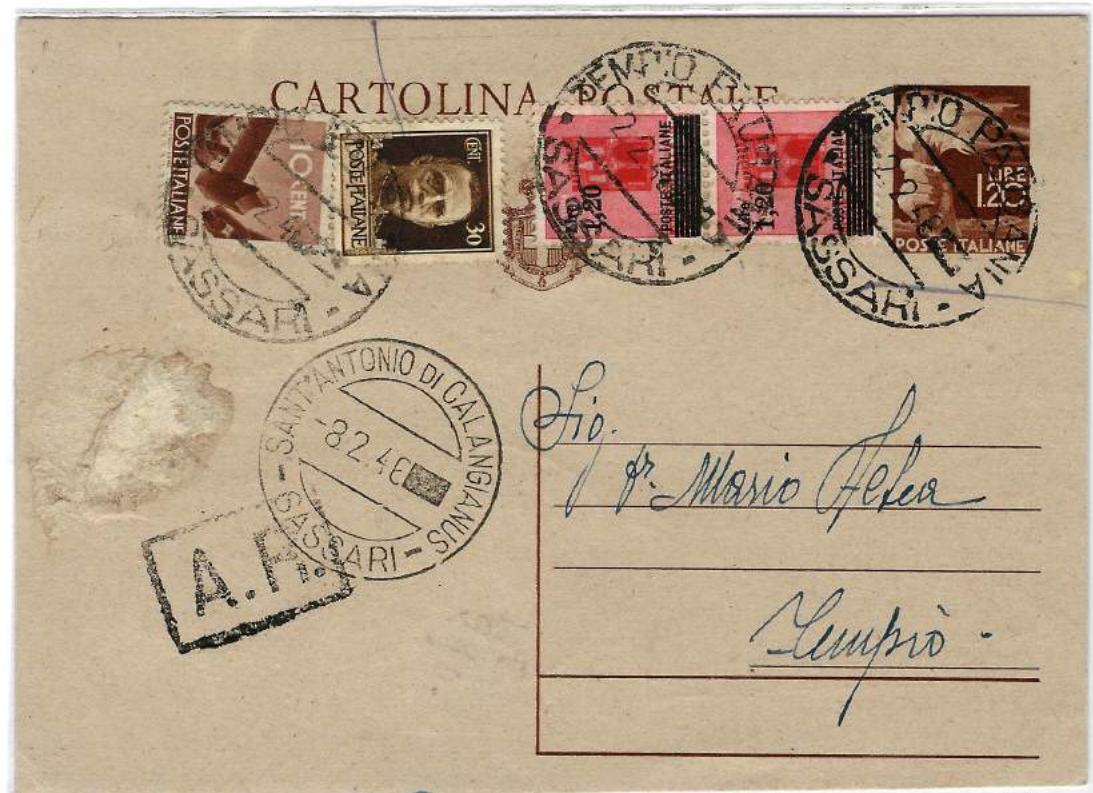 CARTOLINA POSTALE
POSTE ITALIANE
10 CENT
CENT
POSTE ITALIANE
30
1,20
POSTE ITALIANE
1,20
POSTE ITALIANE
LIRE
1.20
POSTE ITALIANE
TEMPIO PAUSANIA
- SASSARI -
TEMPIO PAUSANIA
- SASSARI -
TEMPIO PAUSANIA
- SASSARI -
SANT'ANTONIO DI CALANGIANUS
-8.2.46
- SASSARI -
A.R.
Sig.
Mario
Tempio -